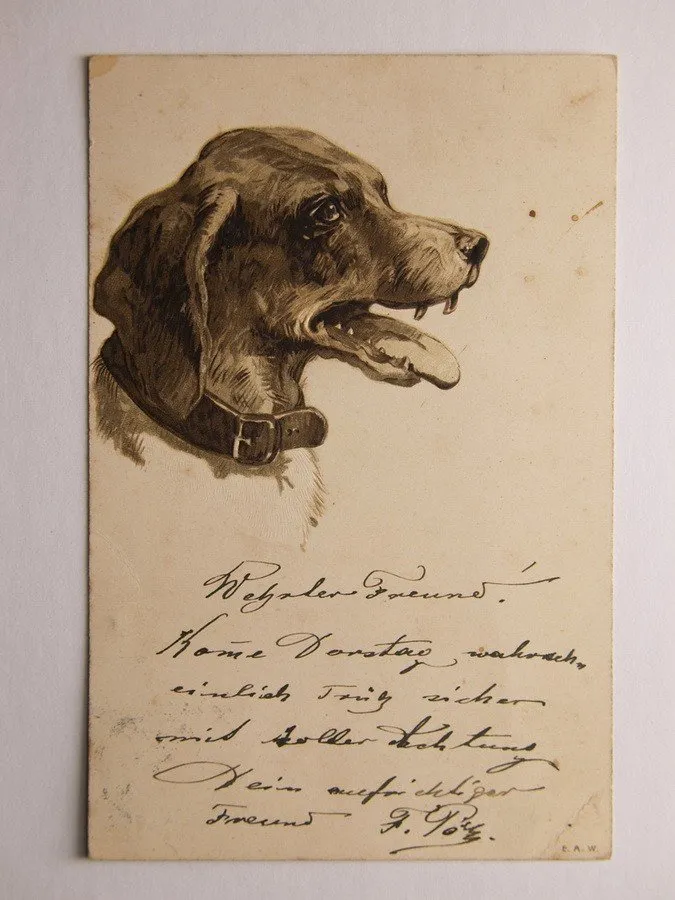 Wehrter Freund!
Kom̄e Dorstag wahrsch„
einlich Früh sicher
mit voller Achtung
Dein aufrichtiger
Freund F.
E. A. W.